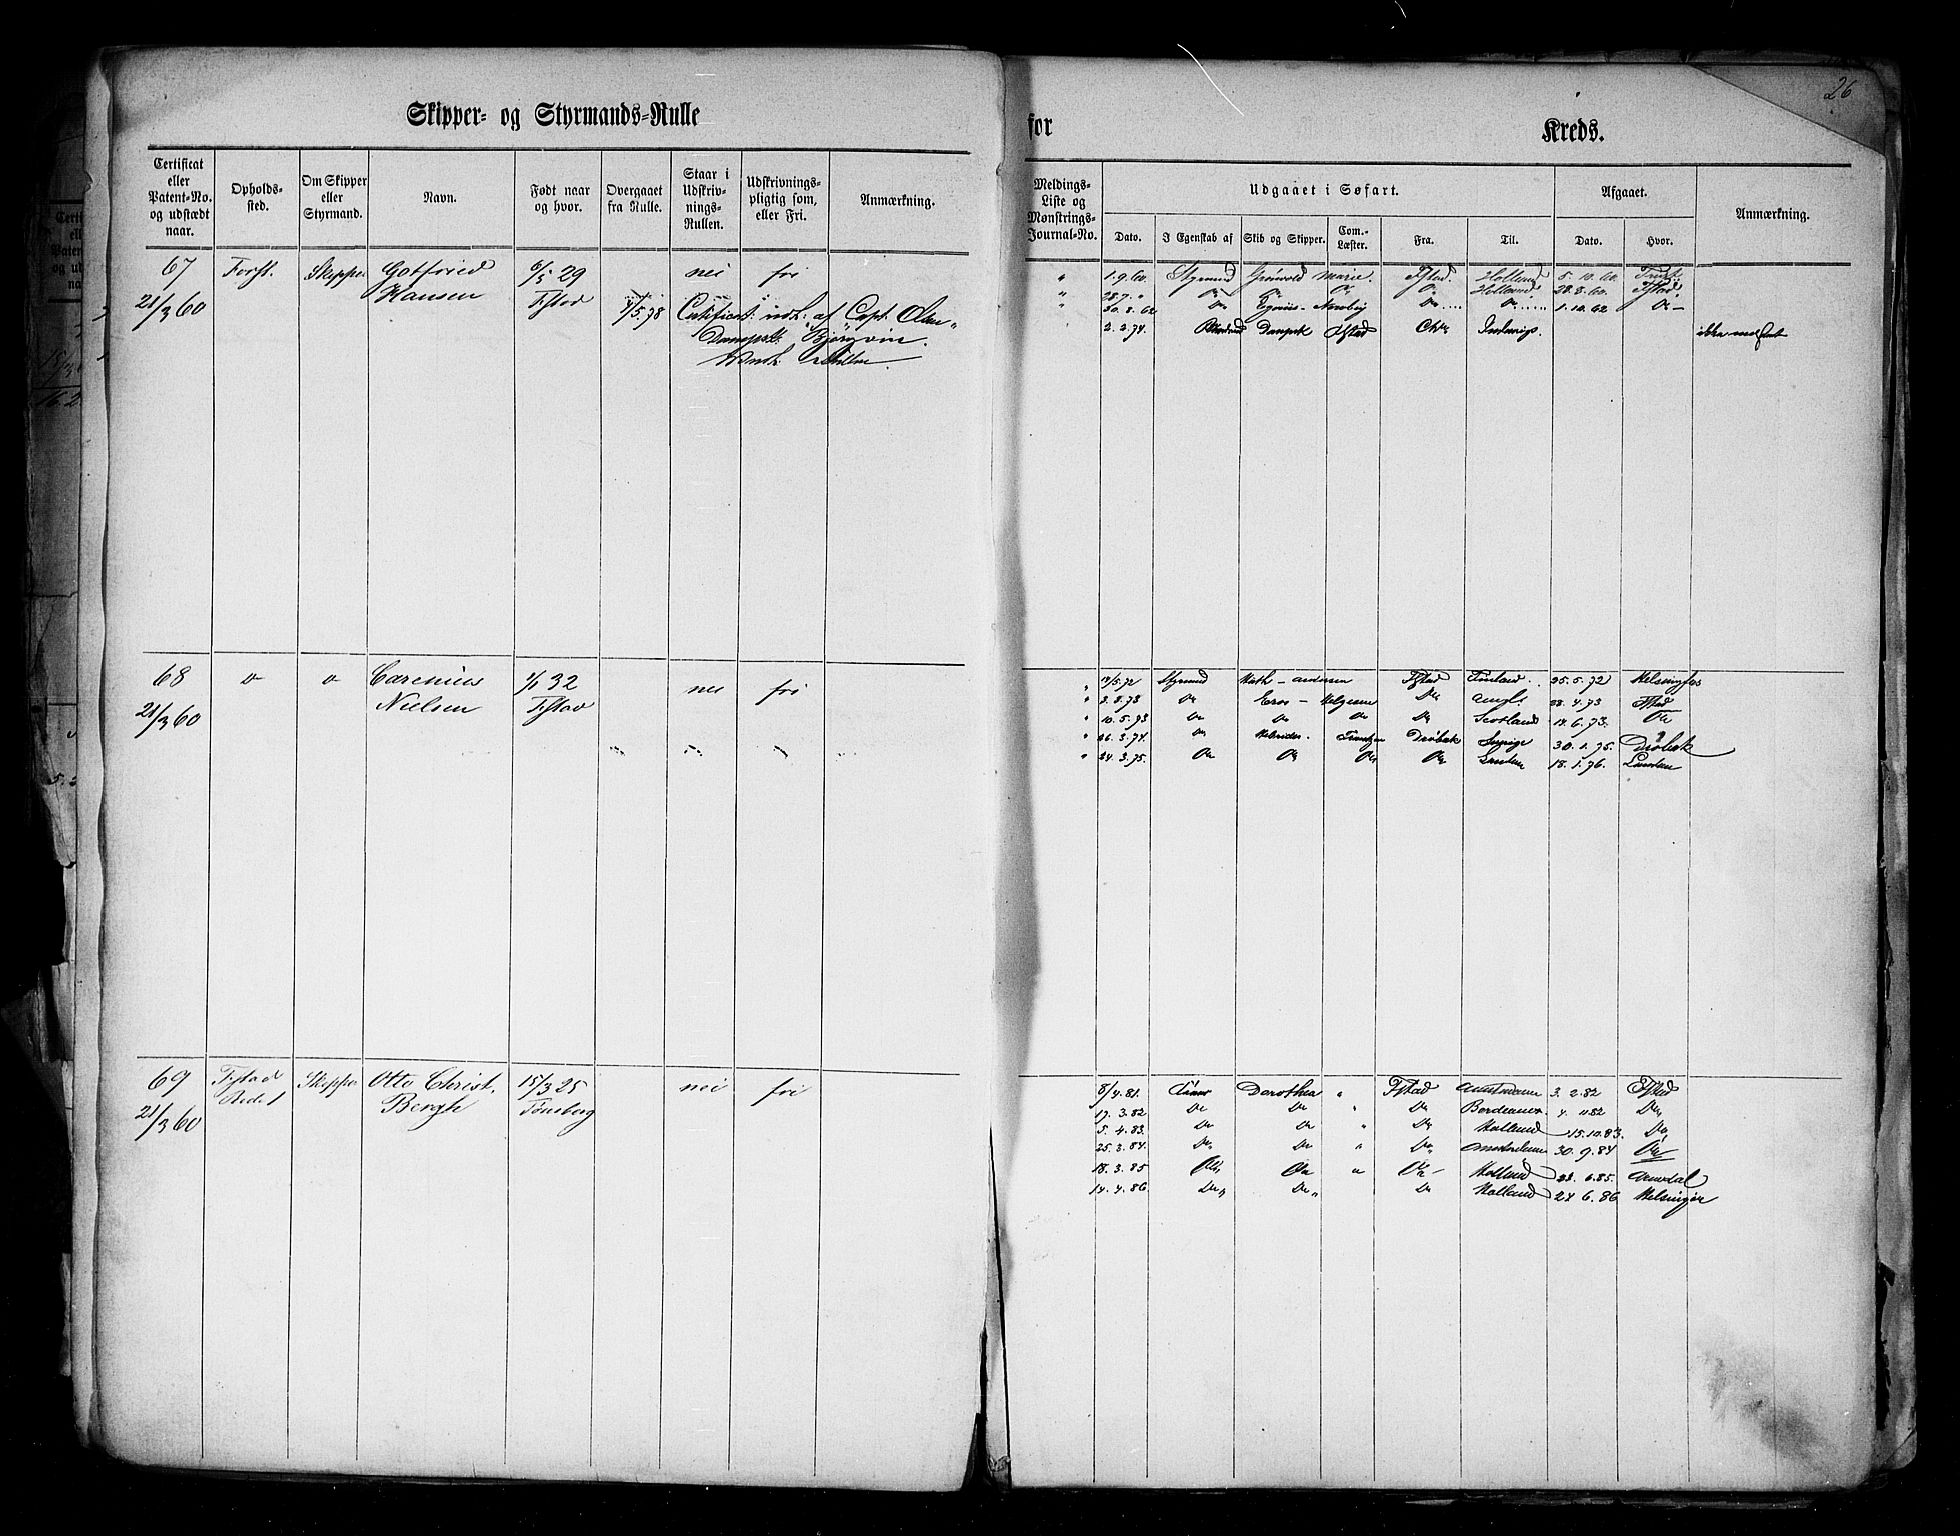 26
Skipper- og Styrmands-Rulle for Kreds.
Certificat eller Patent-No. og udstædt naar. Opholds-sted. Om Skipper eller Styrmand. Navn. Født naar og hvor. Overgaaet fra Rulle. Staar i Udskriv-nings-Rullen. Udskrivnings-pligtig som, eller Fri. Anmærkning.
Meldings-Liste og Mønstrings-Journal-No. Udgaaet i Søfart. Afgaaet. Anmærkning.
Dato. I Egenskab af Skib og Skipper. Com.-Læster. Fra. Til. Dato. Hvor.
67 Skipper Gotfried 6/5 29 nei fri
21/3 60 Hansen Fstad
Certificat: indh: af Capt. Olsen
Dampsk: "Bjørgvin".
" 1.9.60. Styrmd Marie. Fstad. Holland 5.10.60.
" 28.7. " Do Do Do Do Holland 28.8.60. Fstad.
" 30.8.62 Do Do Do 1.10.62 Do
2.2.74. Dampsk Fstad Chra
68 " " Carenius 32 nei fri
21/3 60 Nielsen Fstad
" 11/5.72 Styrmd Andersen Fstad Finland. 25.5.72 Helsingfos
" 3.3.73 Do Eros - Helgesen Do Engl: 28.4.73 Fstad
" 10.5.73 Do Do Do Do Scotland 14.6.73. Do
" 26.3.74. Do Drøbak Sverige 30.1.75. Drøbak
" 24.3.75. Do Do Do Do London 18.1.76. London
69 Fstad Skipper Otto Christ. 15/3 25 nei fri
21/3 60 Bergh Tønsberg
8/4.81. Dorothea " Fstad Amsterdam 3.2.82 Fstad
17.3.82 Do Do " Do Bordeaux. 4.11.82 Do
5.4.83. Do Do " Do Holland 15.10.83. Do
25.3.84. Do Do " Do Amsterdam 30.9.84 Do
18.3.85 Do Do " Do Holland 28.6.85. Arendal
14.4.86 Do Do Do Holland 24.6.86 Helsingør